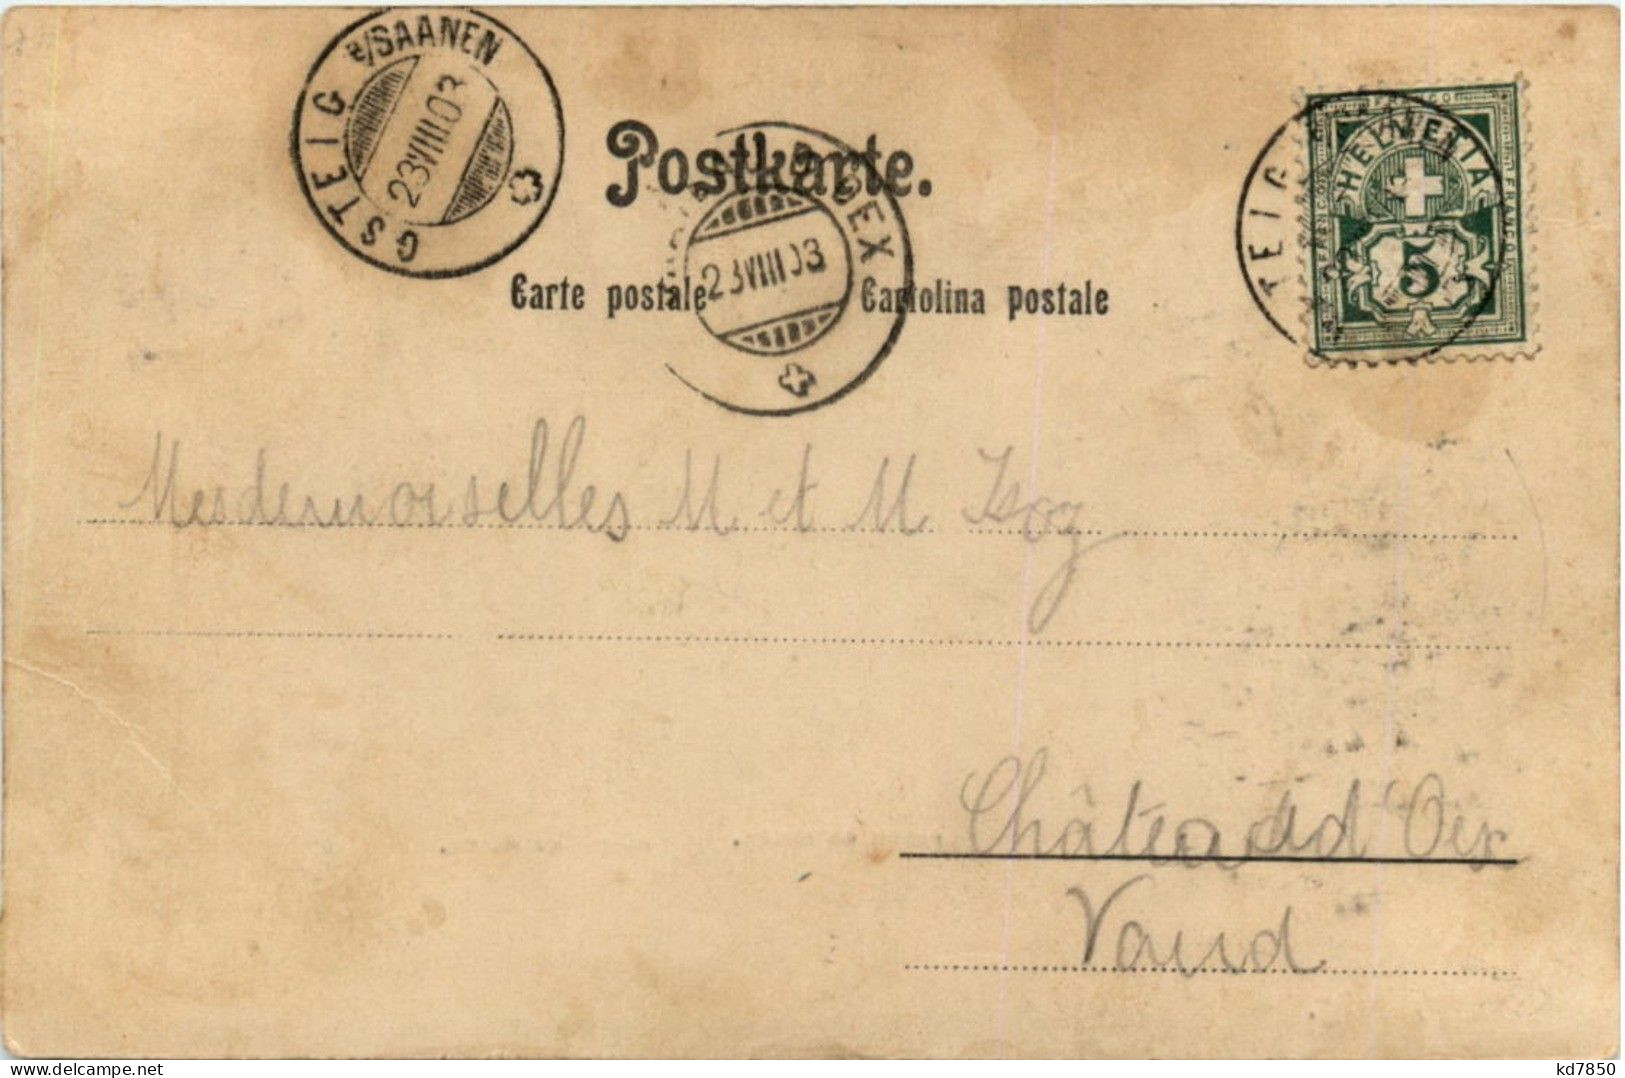 GSTEIG b/SAANEN
23 VIII 03
Postkarte.
EX
23 VIII 03
Carte postale Cartolina postale
TEIG
FRANCO
HELVETIA
5
Mesdemoiselles M et M
Château d'Oex
Vaud
kd7850